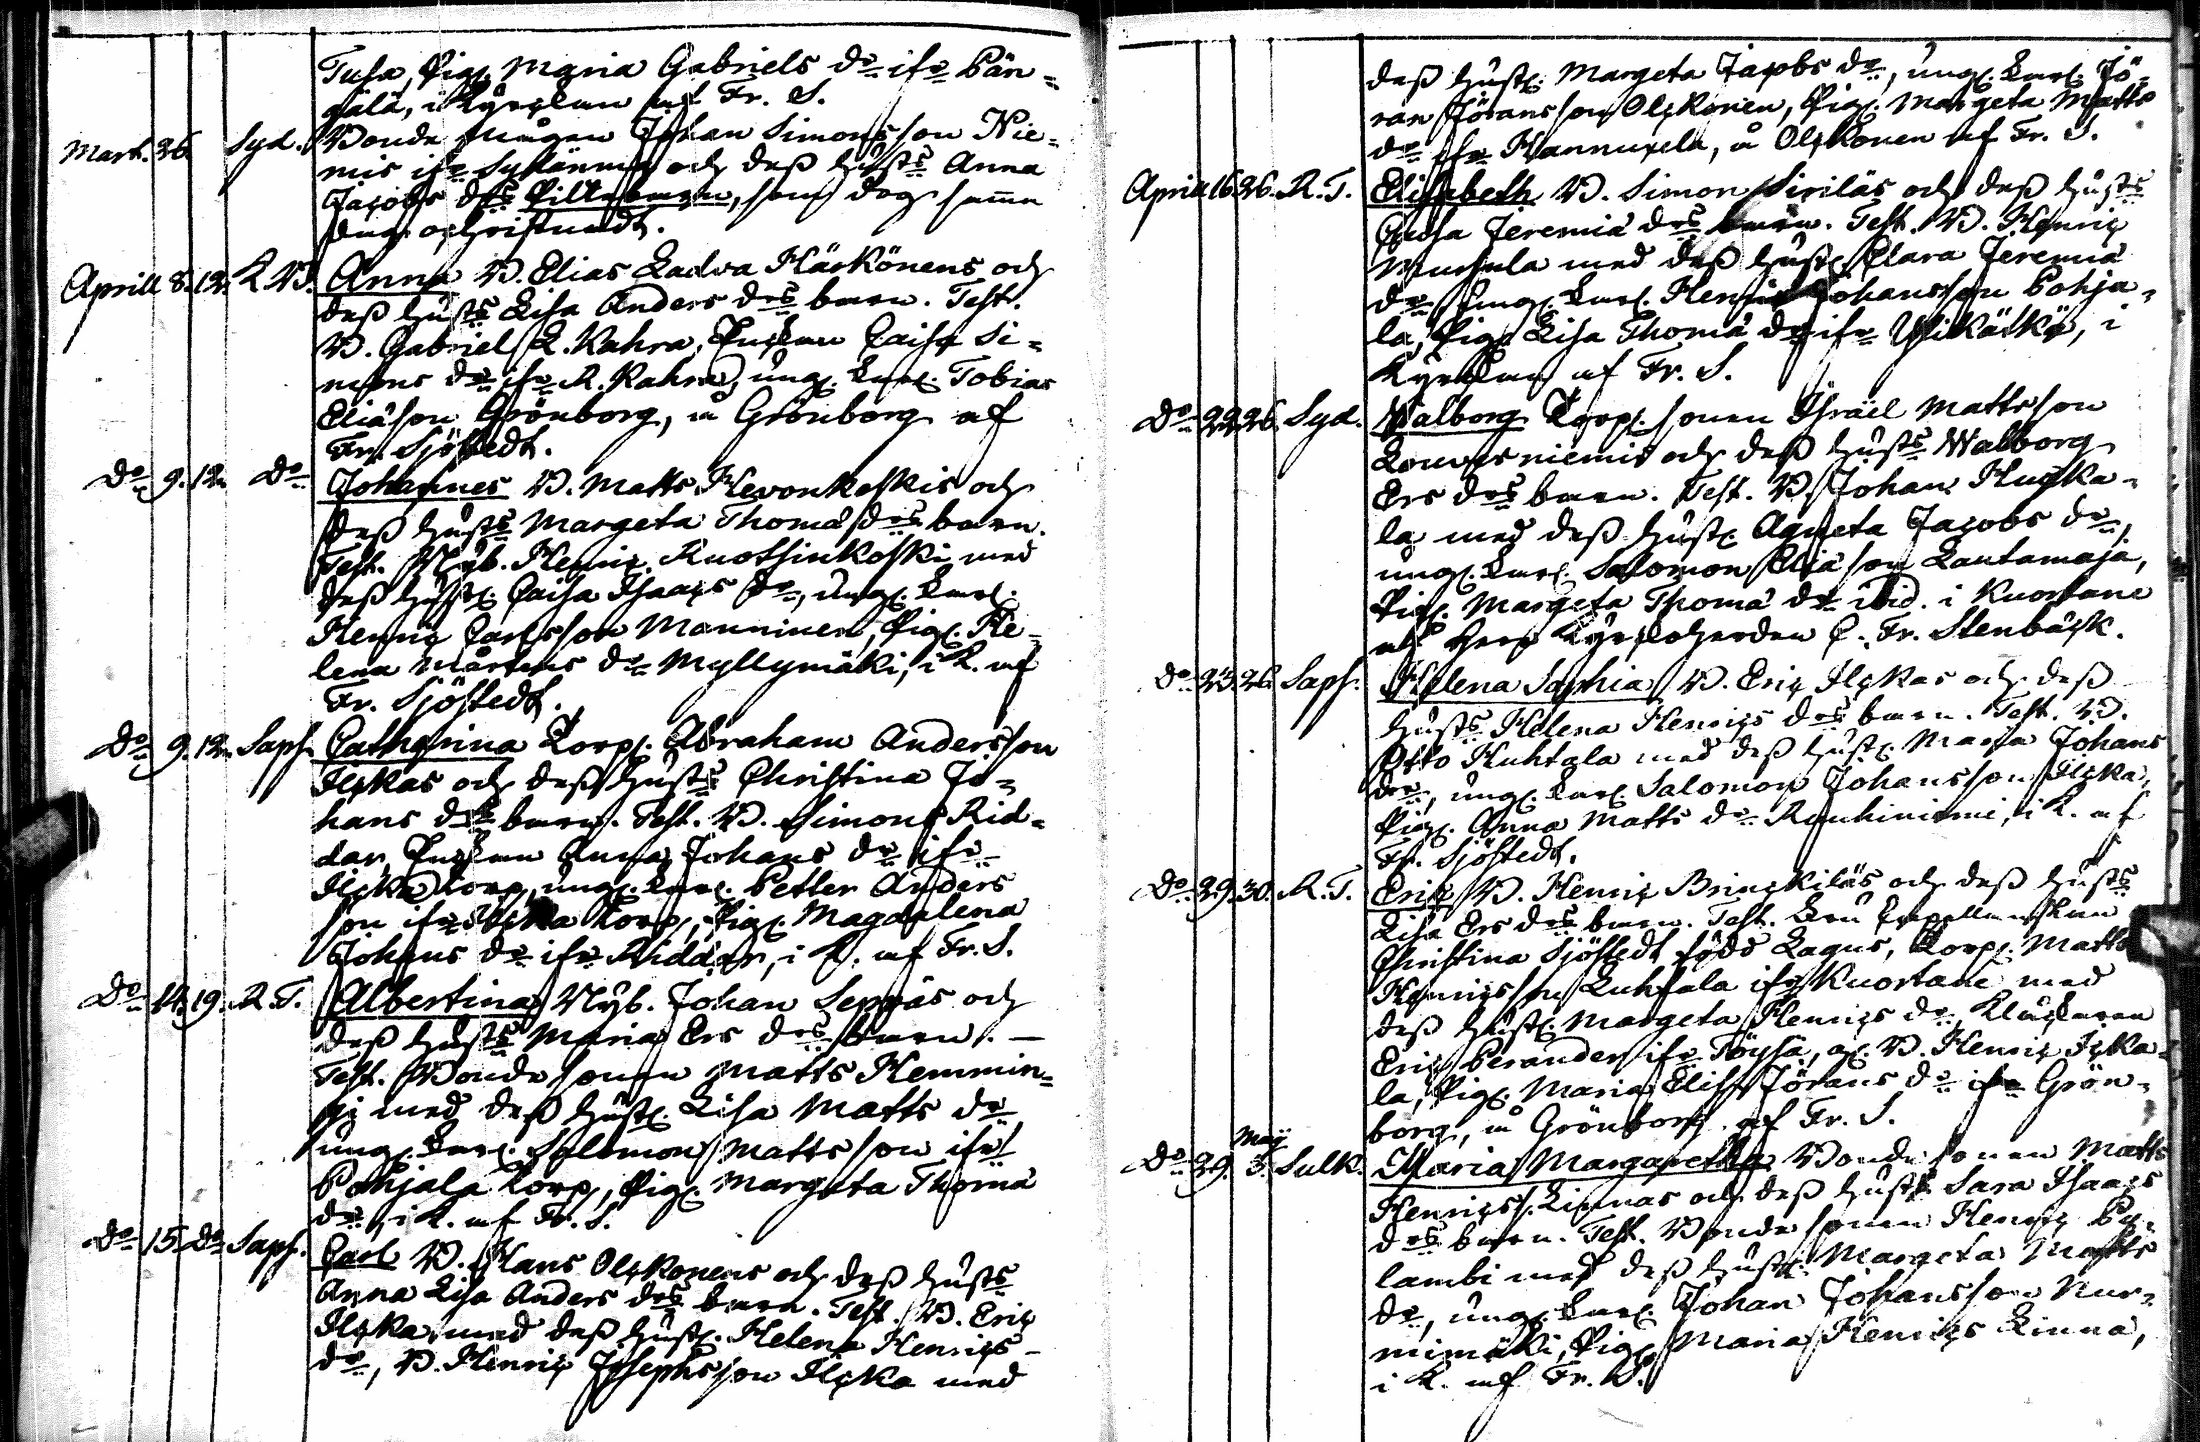 Tusa, Pig. Maria Gabriels dr ifr Pän=
gälä, i Kyrckan af Fr. S.
Mart. 26. Syd. Bonde mågen Johan Simonsson Nie=
mis ifr Sydänma och dess hust:s Anna
Jacobs dr:s Pillebarn, som dog samma
dag ochristnadt.
Aprill 8. 12. K. B. Anna B. Elias Ladva Härkönens och
dess hust:s Lisa Anders dr:s barn. Test.
B. Gabriel L. Rahra, Enckan Caisa Si=
mons dr ifr R. Rahra, ung. Karl. Tobias
Eliasson Grönborg, å Grönborg af
Fr. Sjöstedt.
Do 9. 12. Do Johannes B. Matts Hevonkoskis och
dess hust:s Margeta Thomæ dr:s barn.
Test. Nyb. Henric Ruotsinkoski med
dess hust. Caisa Isaacs dr, ung. Karl.
Henric Carlsson Manninen, Pig. He=
lena Mårtens dr Myllymäki, i K. af
Fr. Sjöstedt.
Do 9. 12. Saps. Catharina Torp. Abraham Andersson
Ilckas och dess hust:s Christina Jo=
hans dr:s barn. Test. B. Simons Rid=
dar, Enckan Anna Johans dr ifr
Ilcka Torp, ung. Karl. Petter Anders
son ifr Ilcka Torp, Pig. Magdalena
Johans dr ifr Riddar, i K. af Fr. S.
Do 14. 19. R. T. Albertina Nyb. Johan Seppäs och
dess hust:s Maria Ers dr:s barn. —
Test. Bonde sonen Matts Hemmin=
gi med dess hust. Lisa Matts dr
ung. Karl. Salomon Mattsson ifr
Pohjala Torp, Pig. Margeta Thomæ
dr, i K. af Fr. S.
Do 15. Do Saps. Carl B. Hans Olckonens och dess hust:s
Anna Lisa Anders dr:s barn. Test. B. Eric
Ilcka med dess hust. Helena Henrics
dr, B. Henric Josephsson Ilcka med
dess hust. Margeta Jacobs dr, ung. Karl. Jö=
ran Jöransson Olckonen, Pig. Margeta Matts
dr ifr Hannuxela, å Olckonen af Fr. S.
Aprill 16. 26. R. T. Elisabeth B. Simon Siriläs och dess hust:s
Caisa Jeremiæ dr:s barn. Test. B. Henric
med dess hust. Clara Jeremiæ
dr, ung. Karl. Henric Johansson Pohja=
la, Pig. Lisa Thomæ dr ifr Ylikätkä, i
Kyrckan af Fr. S.
Do 22. 26. Syd. Walborg Torp. sonen Israel Mattsson
niemis och dess hust:s Walborg
Ers dr:s barn. Test. B. Johan Hucka=
la med dess hust. Agneta Jacobs dr,
ung. Karl. Salomon Eliæson Lautamaja,
Pig. Margeta Thomæ dr ibid. i Kuortane
af Herr Kyrckoherden C. Fr. Stenbäck.
Do 25. 26. Saps. Helena Sophia B. Eric Ilckas och dess
hust:s Helena Henrics dr:s barn. Test. B.
Otto Huhtala med dess hust. Maria Johans
dr, ung. Karl. Salomon Johansson Ilcka,
Pig. Anna Matts dr Rauhiniemi, i K. af
Fr. Sjöstedt.
Do 29. 30. R. T. Eric B. Henric Brinckiläs och dess hust:s
Lisa Ers dr:s barn. Test. Fru Capellanskan
Christina Sjöstedt född Lagus, Torp. Matts
Henricsson Luhtala ifr Kuortane med
dess hust. Margeta Henrics dr, Klåckaren
Eric Perander ifr Töysä, B. Henric Icka=
la, Pig. Maria Elisa Jörans dr ifr Grön=
borg, å Grönborg af Fr. S.
Do 29. May 3. Sulk. Maria Margaretha Bonde sonen Matts
Henricss. Linnas och dess hust:s Sara Isaacs
dr:s barn. Test. Bonde sonen Henric Py=
lambi med dess hust. Margeta Matts
dr, ung. Karl. Johan Johansson Nur=
mimäki, Pig. Maria Henrics Linna,
i K. af Fr. S.